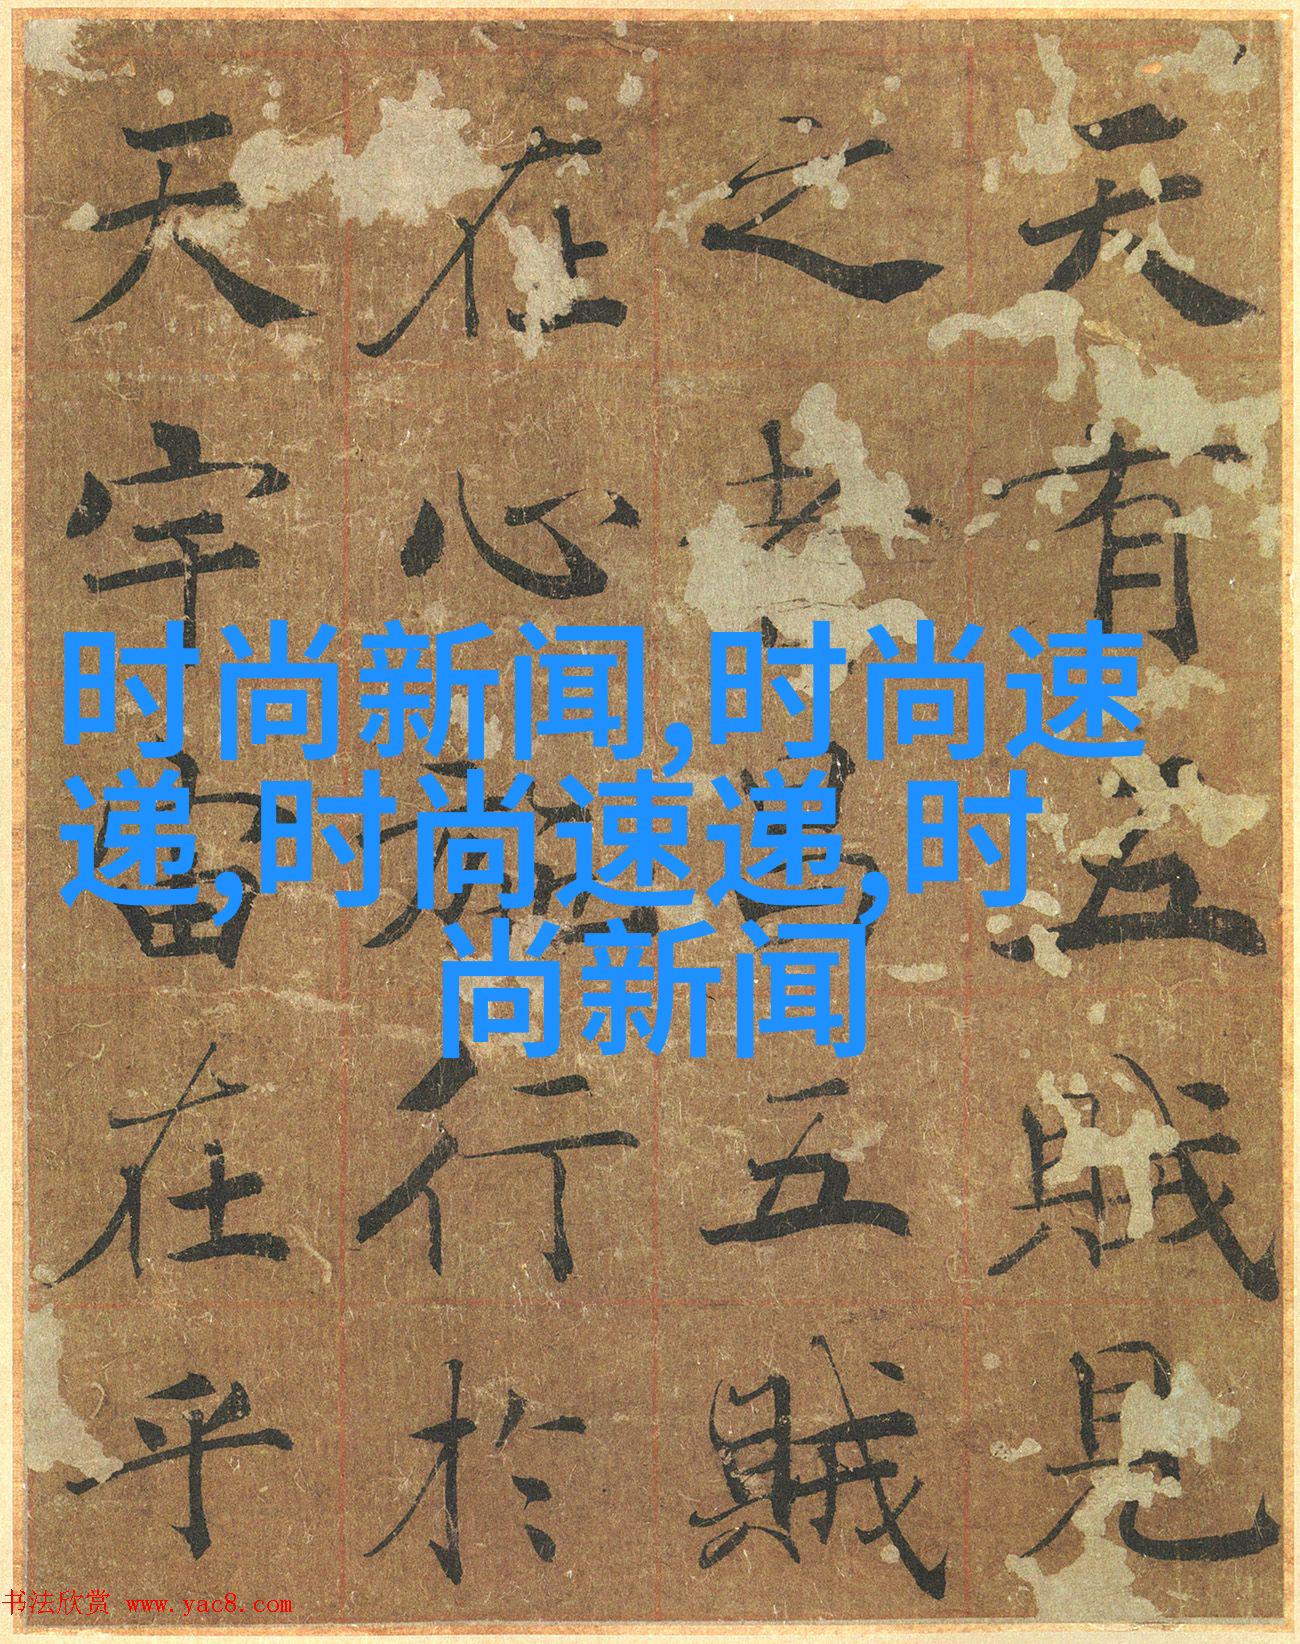 天有五賊見
之者昌五賊
在心施行於
天宇宙在乎
时尚新闻,时尚速
递,时尚速递,时
尚新闻
书法欣赏 www.yac8.com